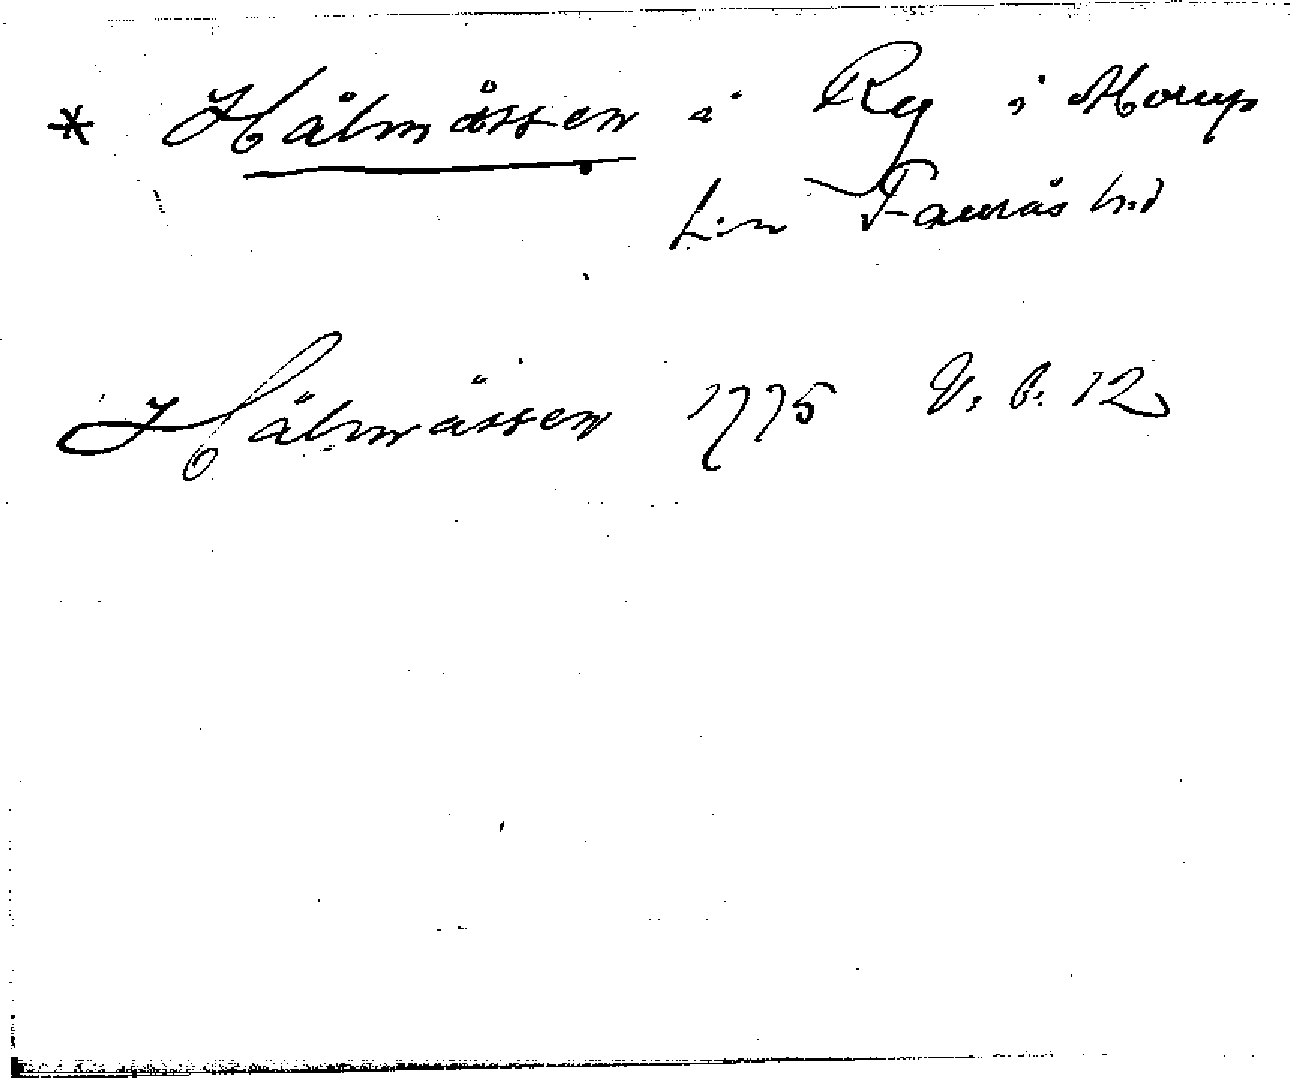 * Hålmåssen i Ry i Morup
s:n Faurås h:d
Hålmåssen 1775 V. b. 12